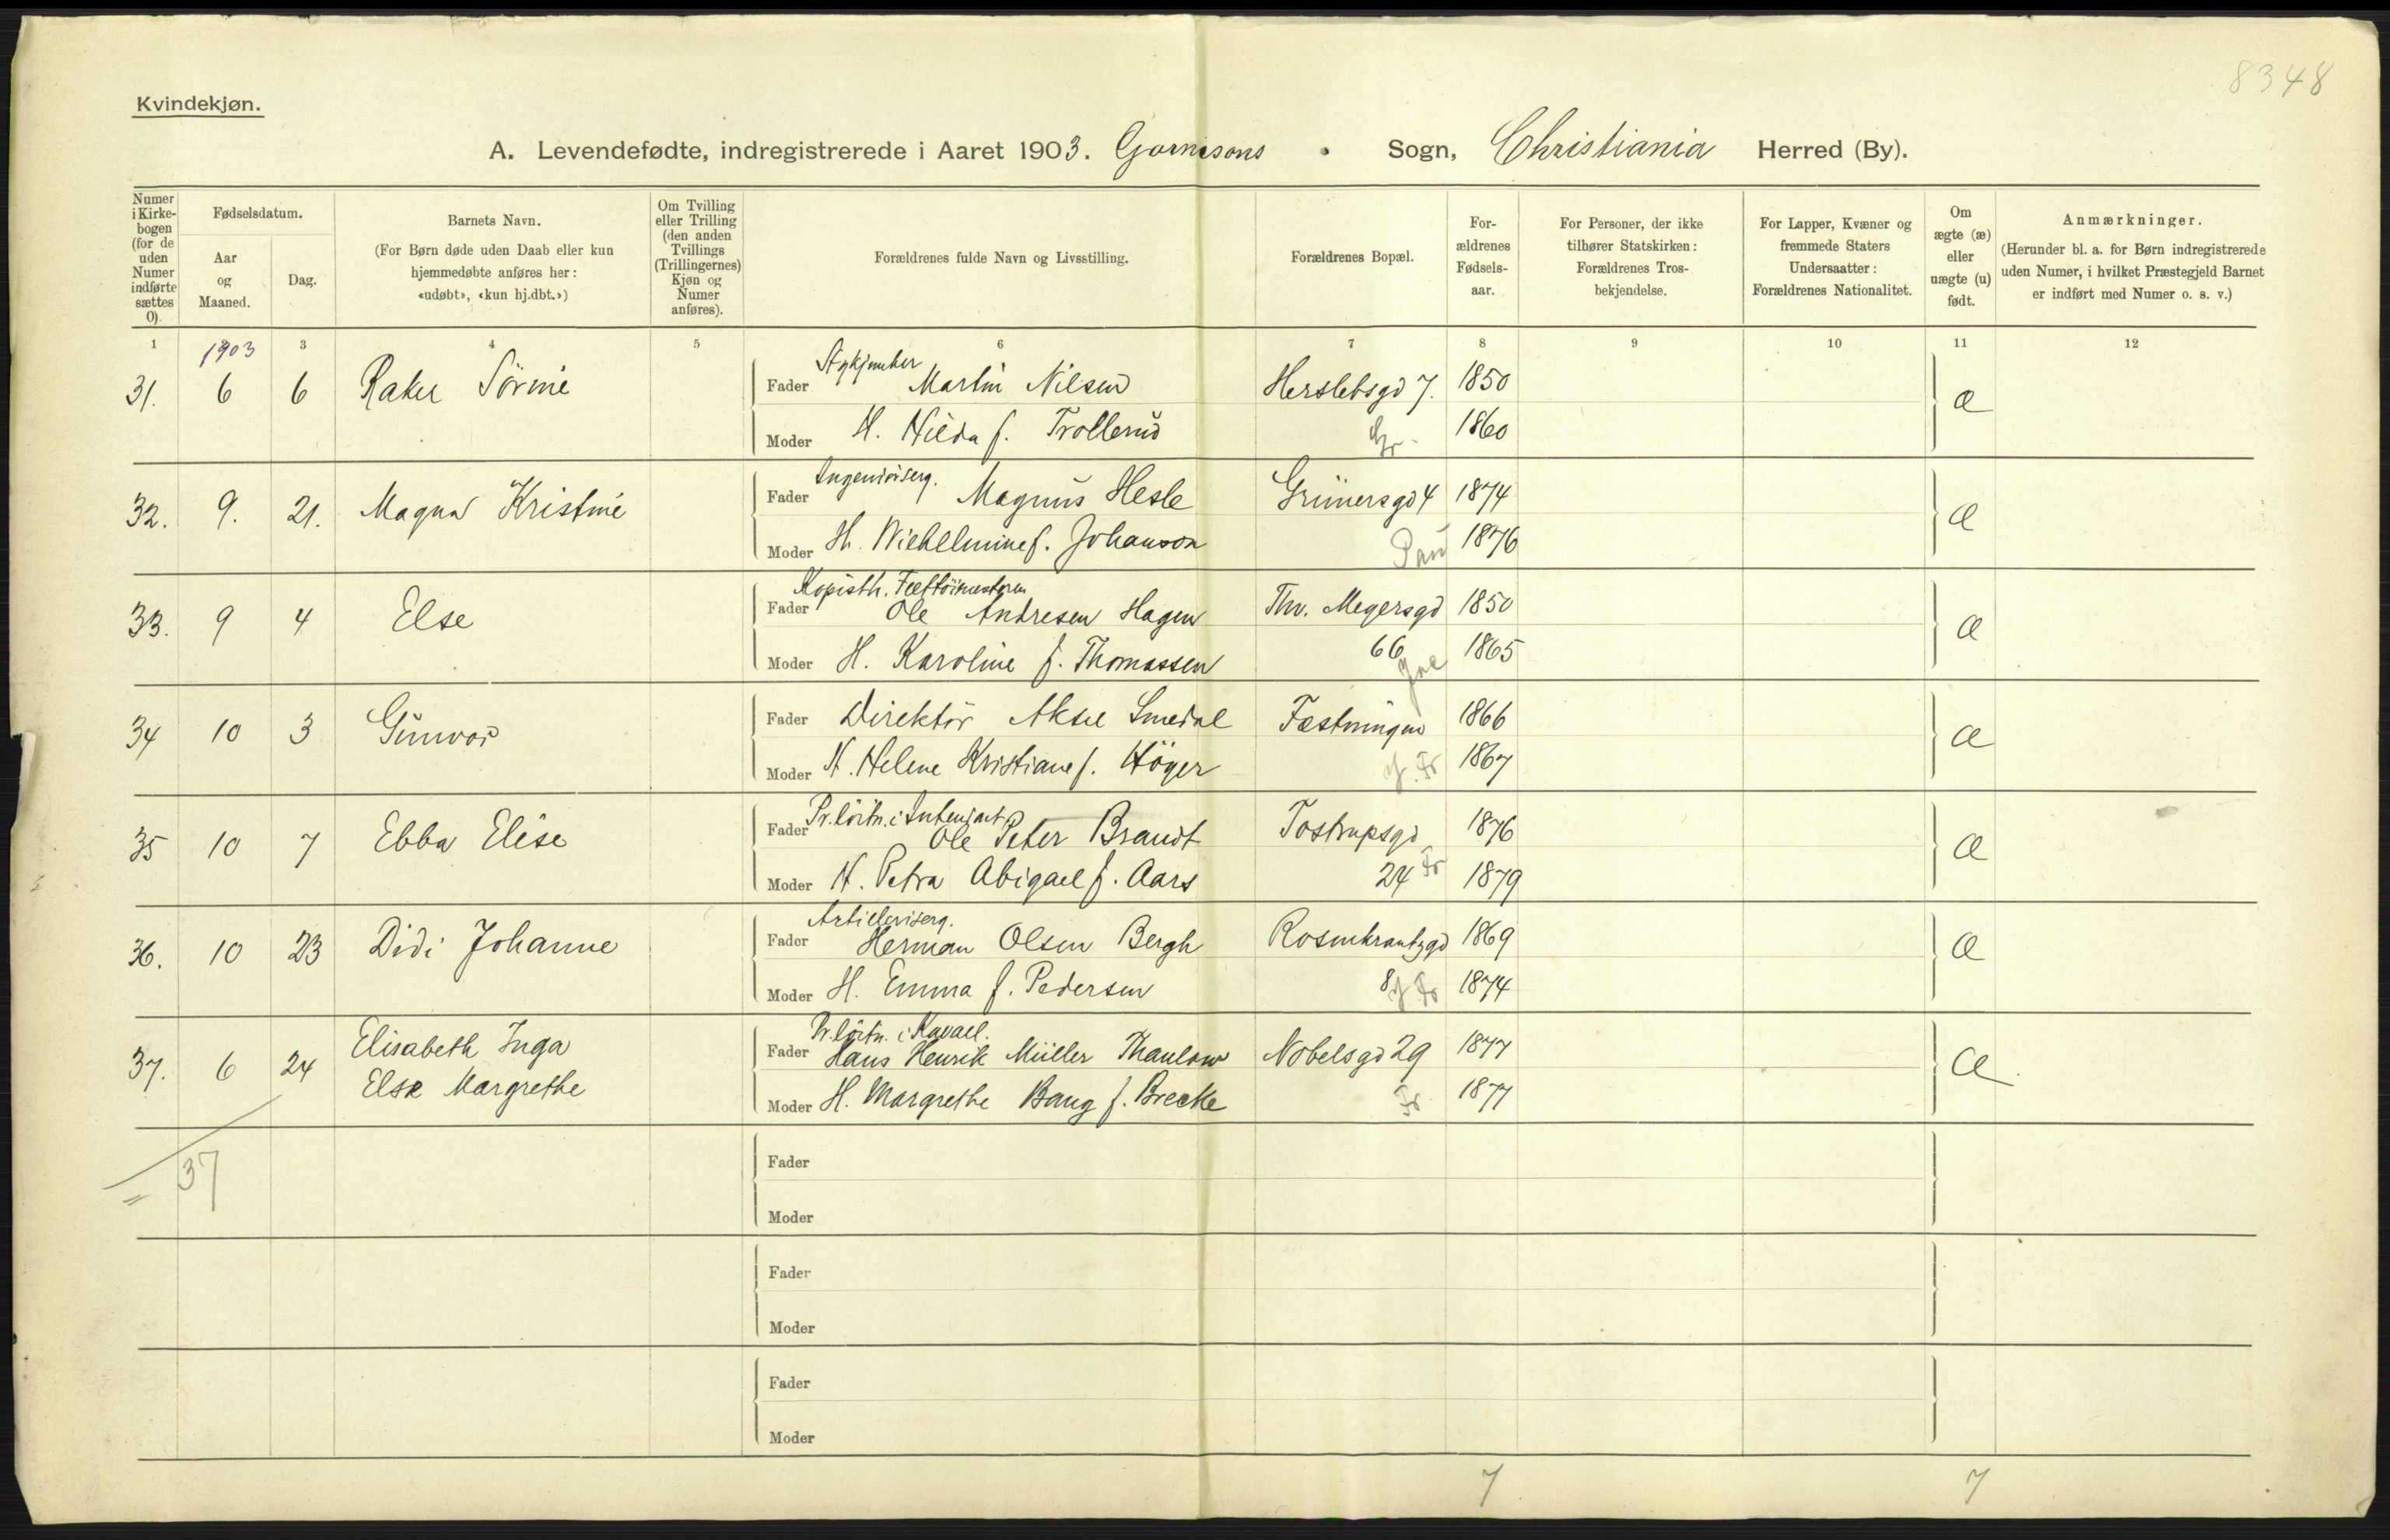 8348
Kvindekjøn.
A. Levendefødte, indregistrerede i Aaret 1903. Garnisons Sogn, Christiania Herred (By).
Numer i Kirkebogen (for de uden Numer indførte sættes 0).
Fødselsdatum.
Aar og Maaned.
Dag.
Barnets Navn.
(For Børn døde uden Daab eller kun
hjemmedøbte anføres her:
«udøbt», «kun hj.dbt.»)
Om Tvilling
eller Trilling
(den anden
Tvillings
(Trillingernes)
Kjøn og
Numer
anføres).
Forældrenes fulde Navn og Livsstilling.
Forældrenes Bopæl.
For-
ældrenes
Fødsels-
aar.
For Personer, der ikke
tilhører Statskirken:
Forældrenes Tros-
bekjendelse.
For Lapper, Kvæner og
fremmede Staters
Undersaatter:
Forældrenes Nationalitet.
Om
ægte (æ)
eller
uægte (u)
født.
Anmærkninger.
(Herunder bl. a. for Børn indregistrerede
uden Numer, i hvilket Præstegjeld Barnet
er indført med Numer o. s. v.)
1 3 4 5 6 7 8 9 10 11 12
1903
Stykjunker
31. 6 6 Fader Martin Nilsen Herslebsgd 7. 1850 æ
Moder H. Hilda f. Trollerud Gr. 1860
Ingeniörserg.
32. 9. 21. Magna Kristine Fader Magnus Hesle Grünersgd 4 1874 æ
Moder H. Wilhelmine f. Johanson 1876
33. 9 4 Else Fader Ole Andresen Hagen Thv. Meyersgd 1850 æ
Moder H. Karoline f. Thomassen 66 1865
34 10 3 Gunvor Fader Direktör Aksel Smedal Fæstningen 1866 æ
Moder H. Helene Kristiane f. Höyer 1867
Pr. löitn. i
35 10 7 Ebba Elise Fader Ole Peter Brandt Tostrupsgd 1876 æ
Moder H. Petra Abigael f. Aars 24 Fr 1879
Artilleriserg.
36. 10 23 Didi Johanne Fader Herman Olsen Bergh Rosenkrantzgd 1869 æ
Moder H. Emma f. Pedersen 8 1874
Pr. löitn. i Kavall.
37. 6 24 Elisabeth Inga Fader Hans Henrik Müller Thaulow Nobelsgd 29 1877 æ
Else Margrethe Moder H. Margrethe Bang f. Brecke Fr 1877
37
Fader
Moder
Fader
Moder
Fader
Moder
7 7